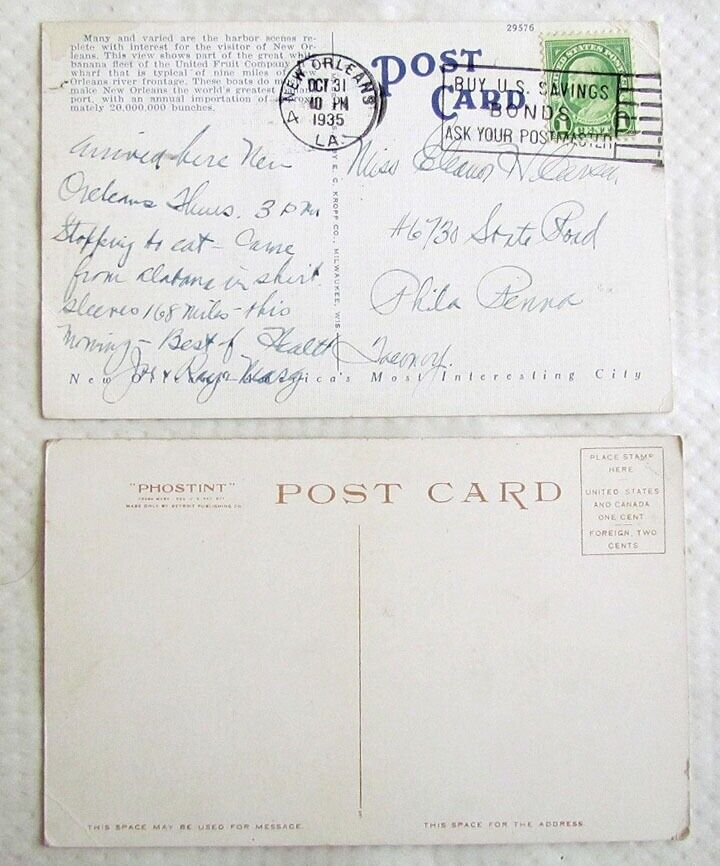 29576
Many and varied are the harbor scenes re-
plete with interest for the visitor of New Or-
leans. This view shows part of the great whi
banana fleet of the United Fruit Company
wharf that is typical of nine miles of
Orleans river frontage. These boats do
make New Orleans the world's greatest
port, with an annual importation of
mately 20,000,000 bunches.
POST
CARD
NEW ORLEANS
OCT 31
10 PM
1935
LA.
4
BUY U.S. SAVINGS
BONDS
ASK YOUR POSTMASTER
UNITED STATES POST
E. C. KROPP CO., MILWAUKEE, WIS.
arrived here New
Orleans Thurs. 3 pm
Stopping to eat - Came
from alabama in shirt
sleeves 168 miles - this
morning - Best of Health
Joe & Ray
Miss Eleanor
#6730 State Road
Phila Penna
Tacony.
New Orleans, America's Most Interesting City
"PHOSTINT"
TRADE MARK REG. U. S. PAT. OFF.
MADE ONLY BY DETROIT PUBLISHING CO.
POST CARD
PLACE STAMP
HERE
UNITED STATES
AND CANADA
ONE CENT
FOREIGN, TWO
CENTS
THIS SPACE MAY BE USED FOR MESSAGE.
THIS SPACE FOR THE ADDRESS.